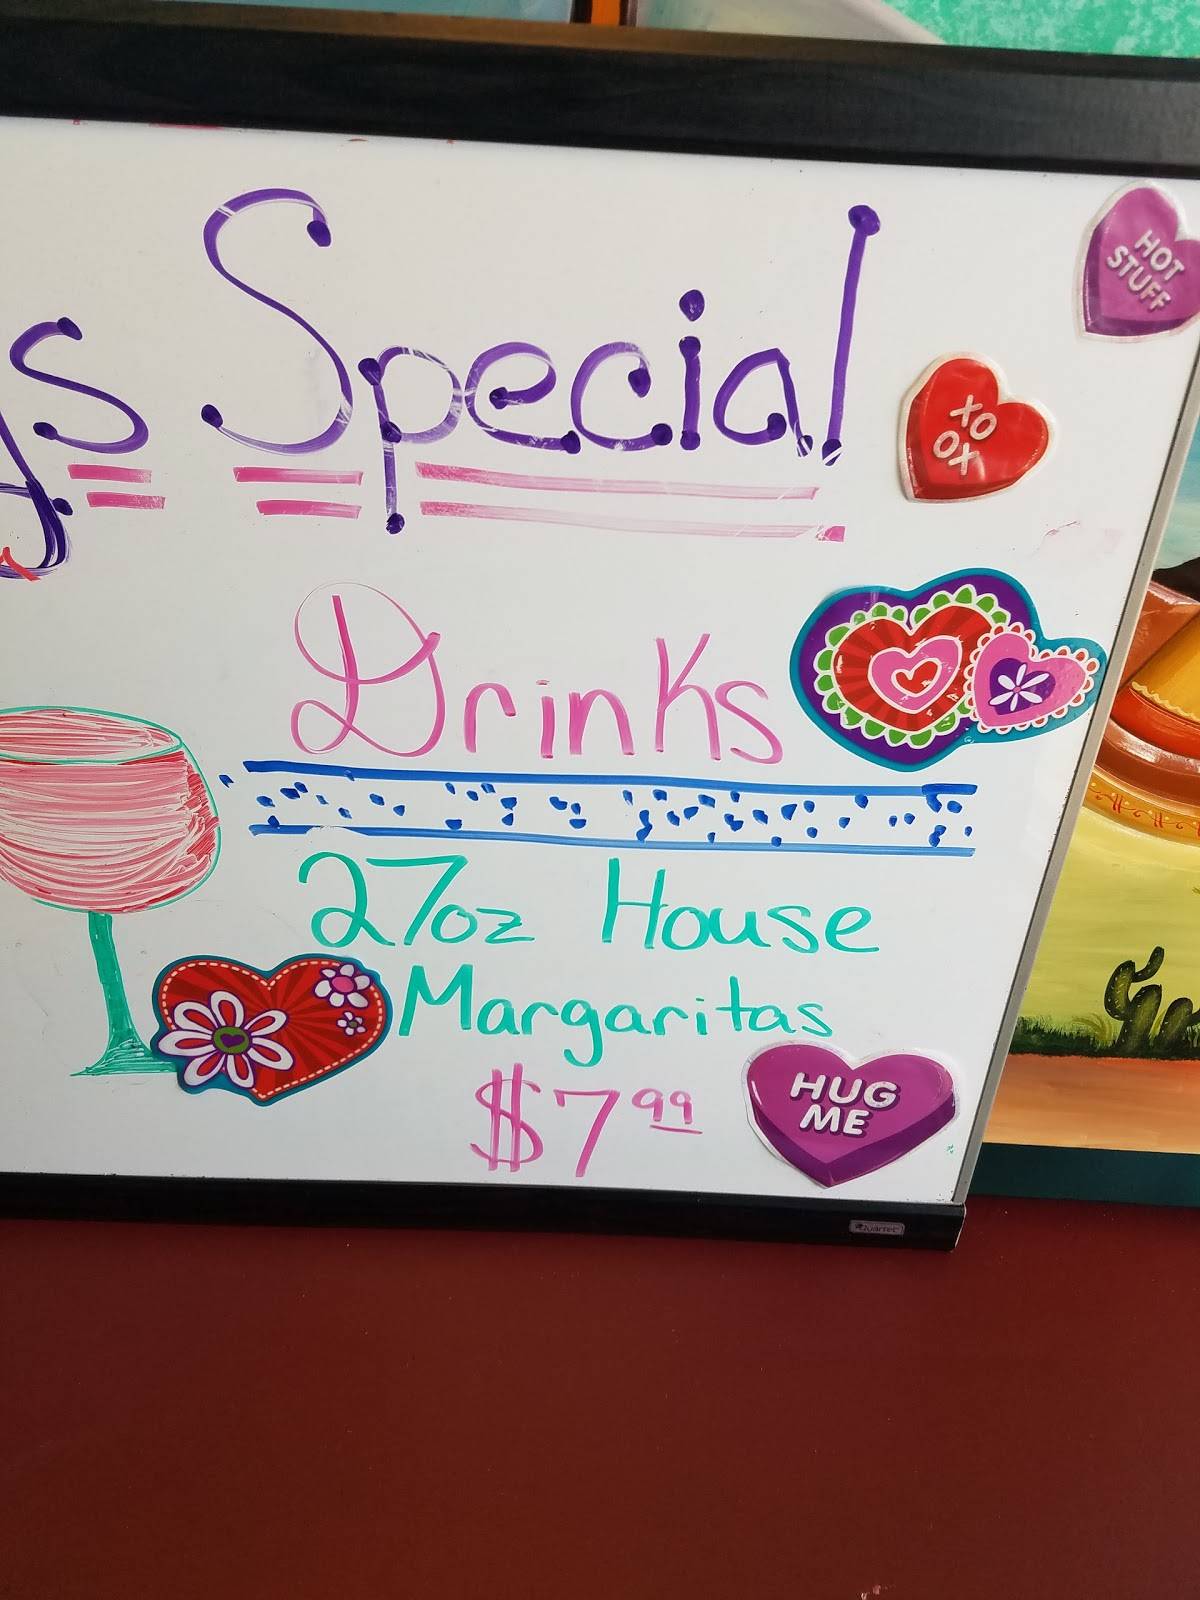 ys Special
HOT
STUFF
XO
OX
Drinks
27oz House
Margaritas
$7.99
HUG
ME
Quartet